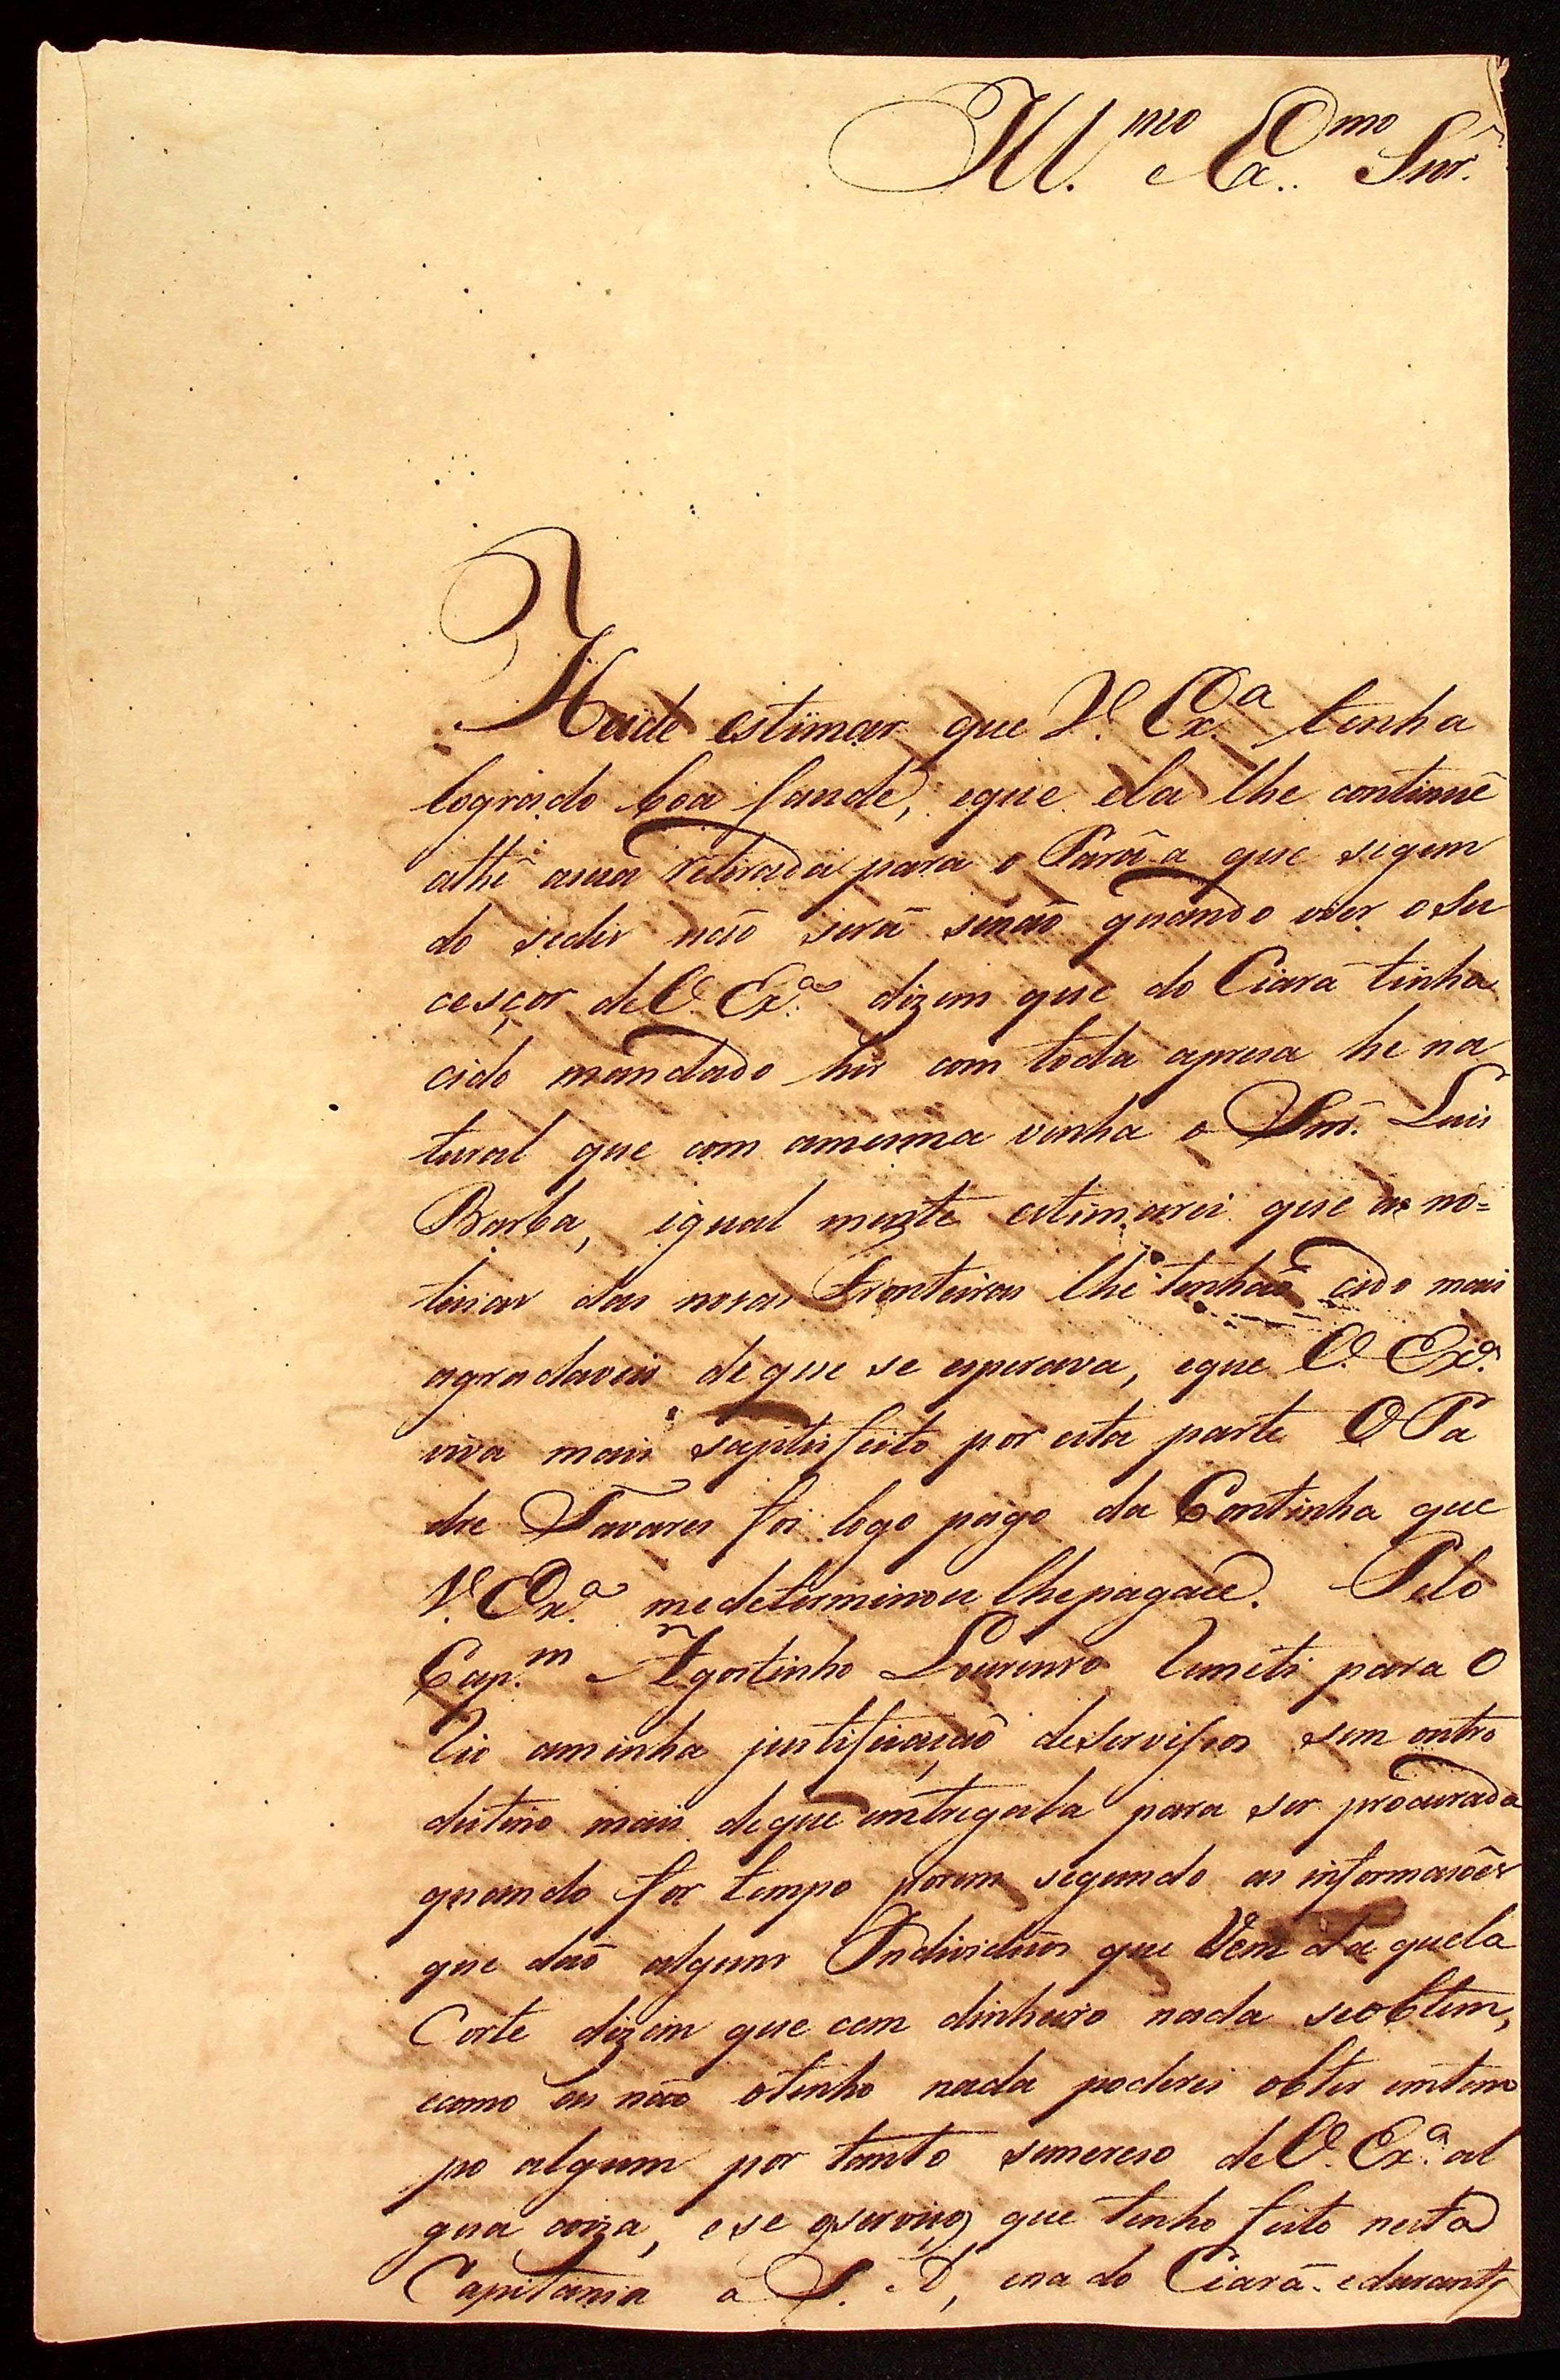 Ill.mo e Ex.mo Snr.
Hade estimar que V. Ex.a tenha
logrado boa saude, eque ela lhe continuê
athê asua retirada para o Parâ a que segun
do sediz não serâ senão quando vier o su
cesçor de V. Ex.a dizem que do Ciarâ tinha
cido mandado hir com toda apresa he na
tural que com amesma venha o Snr. Luis
Barba, igual mente estimarei que as no=
ticias das nosas Fronteiras lhe tenhão cido mais
agradaveis deque se esperava, eque V. Ex.a
viva mais saptisfeito por esta parte O Pa
dre Tavares foi logo pago da Continha que
V. Ex.a medeterminou lhepagace. Pelo
Cap.m Agostinho Lourenso remeti para o
Rio aminha justificação deserviços sem outro
destino mais deque entregala para ser procurada
quando for tempo porem segundo as informasões
que dão alguns Individuos que Vem da quela
Corte dizem que com dinheiro nada seobtem,
ecomo eu não otenho nada poderei obter emtem
po algum por tanto semereso de V. Ex.a al
gua coiza, ese oserviço que tenho feito nesta
Capitania a S. A, ena do Ciarâ edurante